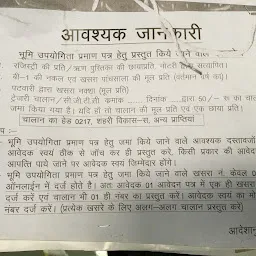 आवश्यक जानकारी
भूमि उपयोगिता प्रमाण पत्र हेतु प्रस्तुत किये जाने वाले
रजिस्ट्री की प्रति/ऋण पुस्तिका की छायाप्रति, नोटरी द्वारा सत्यापित।
बी-1 की नकल एवं खसरा पांचसाला की मूल प्रति (वर्तमान वर्ष का)।
पटवारी द्वारा खसरा नक्शा (मूल प्रति)
ट्रेजरी चालान/सी.जी.टी.सी कमांक दिनांक द्वारा 50/- रू का चालान
जमा किया गया है। यदि हाँ तो चालान की मूल प्रति एवं एक छाया प्रति।
चालान का हेड 0217, शहरी विकास-स, अन्य प्राप्तियां
:-
भूमि उपयोगिता प्रमाण पत्र हेतु जमा किये जाने वाले आवश्यक दस्तावेजों
आवेदक स्वयं ठीक से जाँच कर ही प्रस्तुत करें, किसी प्रकार की आवेदन
आपत्ति पाये जाने पर आवेदक स्वयं जिम्मेदार होंगे।
भूमि उपयोगिता प्रमाण पत्र हेतु जमा किये जाने वाले खसरा नं. केवल 0
ऑनलाईन में दर्ज होते है। अतः आवेदक 01 आवेदन पत्र में एक ही खसरा
दर्ज करें एवं चालान भी 01 ही नंबर का प्रस्तुत करें। आवेदक स्वयं का मो
नंबर दर्ज करें। (प्रत्येक खसरे के लिए अलग-अलग चालान प्रस्तुत करें)
आदेशानु